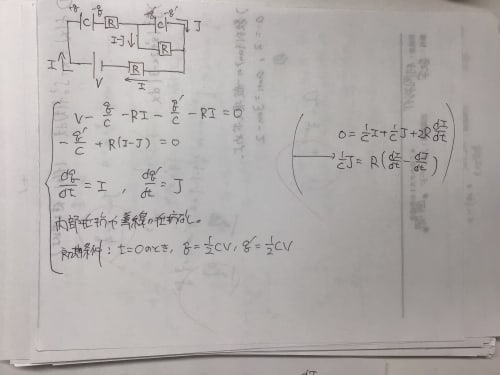 +q -q q' -q'
C R C J
I-J R
I R
V I
V - q/C - RI - q'/C - RI = 0
- q'/C + R(I-J) = 0
dq/dt = I , dq'/dt = J
内部抵抗や導線の抵抗なし。
初期条件 : t=0のとき, q = 1/2 CV, q' = 1/2 CV
0 = 1/C I + 1/C J + 2R dI/dt
→ 1/C J = R(dI/dt - dJ/dt)